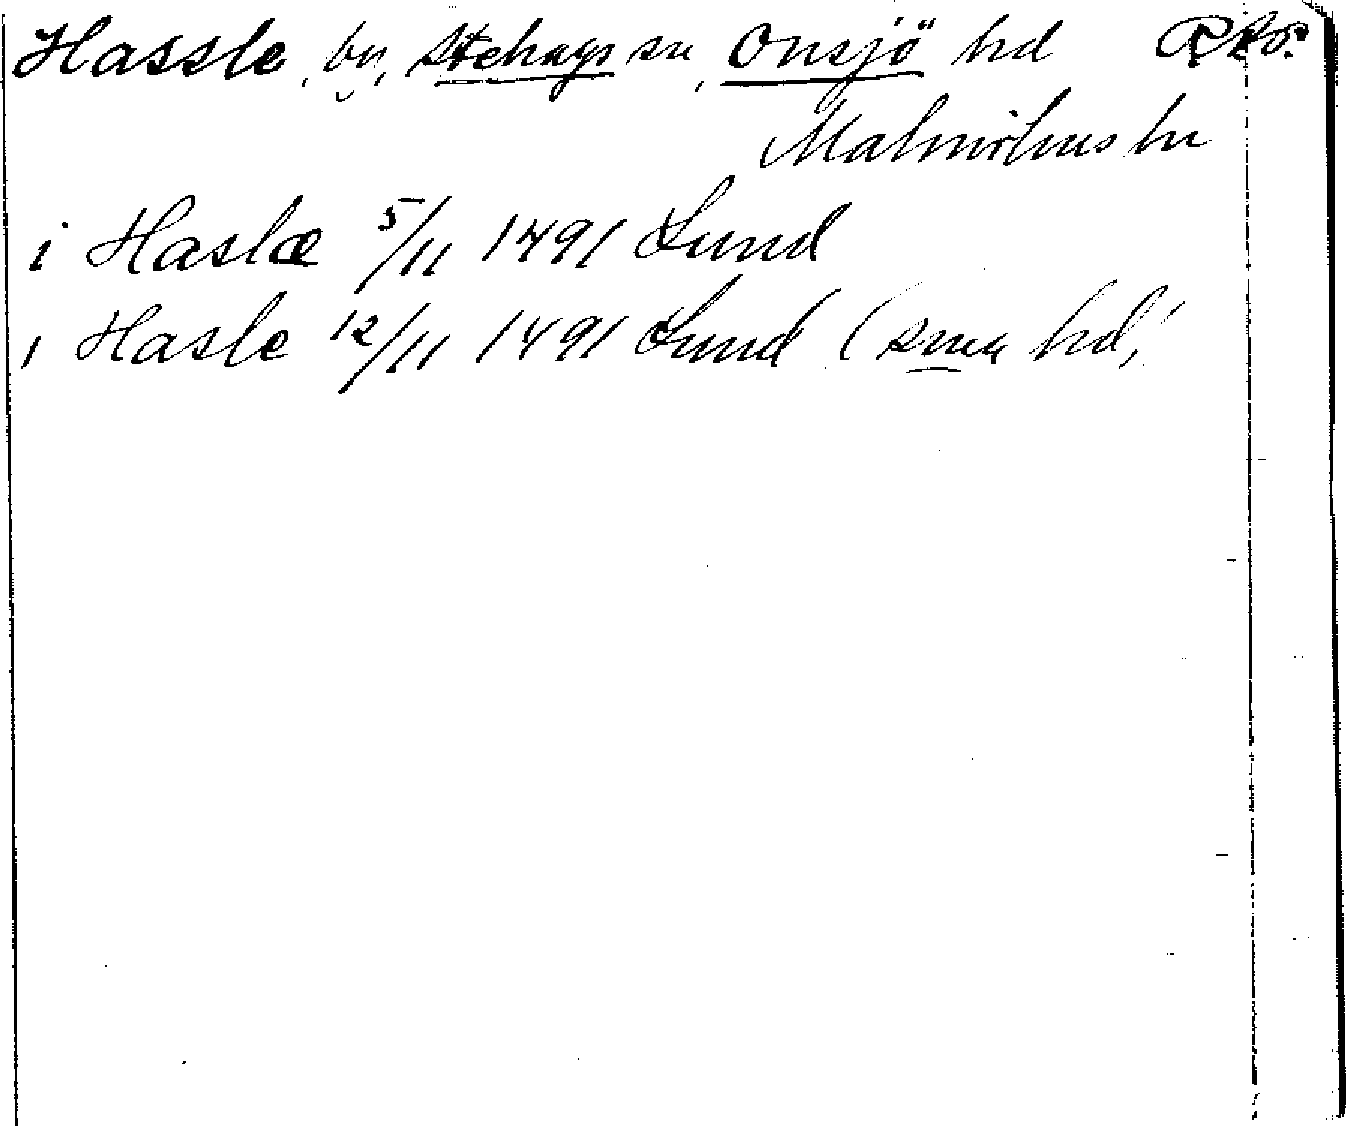 Hassle, by, Stehags sn, Onsjö hd
Malmöhus ln
i Haslæ 5/11 1491 Lund
i Hasle 12/11 1491 Lund (sma hd)